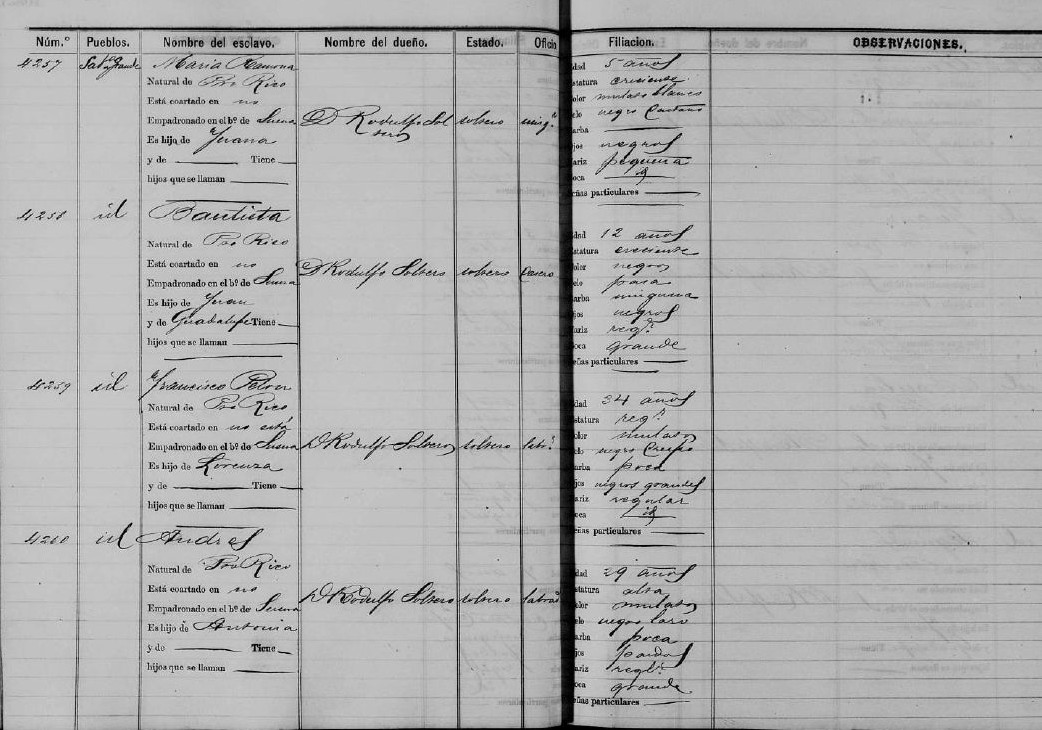 Núm.º Pueblos. Nombre del esclavo. Nombre del dueño. Estado. Oficio Filiacion. OBSERVACIONES.
4257 Sabª Grande Maria Ramona
Natural de Pto Rico
Está coartado en no
Empadronado en el bº. de Susua D Rodulfo Sol
sero soltero ning.º
Es hijo de Juana
y de Tiene
hijos que se llaman
dad 5 años
statura cresiente
olor mulato blanco
elo negro
arba
jos negros
ariz pequeña
oca id
eñas particulares
4258 id Bautista
Natural de Pto Rico
Está coartado en no
Empadronado en el bº. de Susua D Rodulfo Solsero soltero Casero
Es hijo de Juan
y de Guadalupe Tiene
hijos que se llaman
dad 12 años
statura creciente
olor negro
elo pasa
arba ninguna
jos negros
ariz regr.
oca grande
eñas particulares
4259 id Francisco
Natural de Pto Rico
Está coartado en no está
Empadronado en el bº. de Susua D Rodulfo Solsero soltero labº.
Es hijo de Lorenza
y de Tiene
hijos que se llaman
dad 34 años
statura regr.
olor mulato
elo negro Crespo
arba poca
jos negros grandes
ariz regular
oca id
eñas particulares
4260 id Andres
Natural de Pto Rico
Está coartado en no
Empadronado en el bº. de Susua D Rodulfo Solsero soltero labrar
Es hijo de Antonia
y de Tiene
hijos que se llaman
dad 29 años
statura alta
olor mulato
elo negro laso
arba poca
jos pardos
ariz reglr.
oca grande
eñas particulares